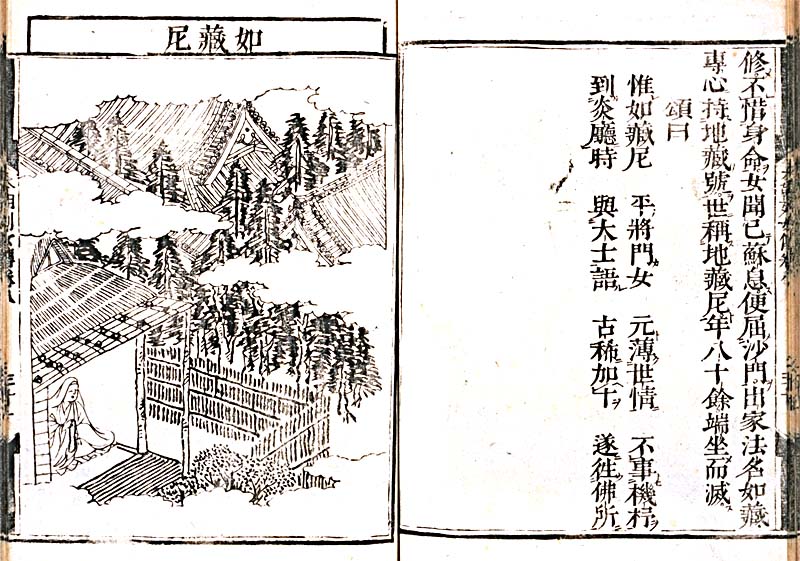 修不惜身命女聞已蘇息便屈沙門出家法名如藏
專心持地藏號世稱地藏尼年八十餘端坐而滅
頌曰
惟如藏尼 平將門女 元薄世情 不事機杼
到炎廳時 與大士語 古稀加十 遂徃佛所
如藏尼